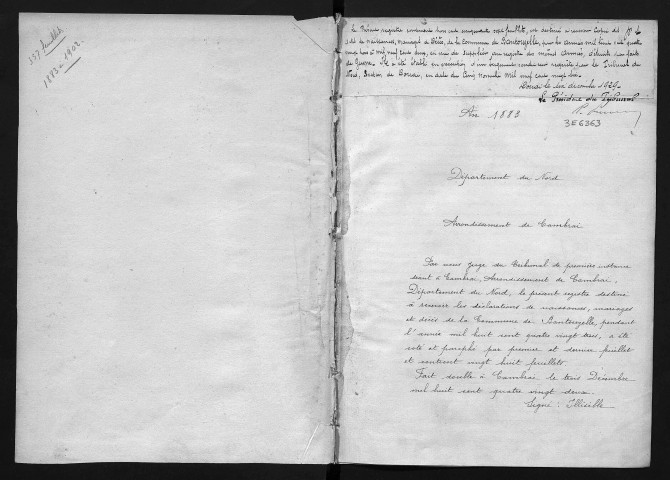 357 feuillets
1883 à 1902.
Le Présent registre contenant trois cent cinquante sept feuillets, est destiné à recevoir copie des
actes de naissances, mariages et Décès, de la Commune de Bantouzelle, pour les années mil huit cent quatre
vingt trois à mil neuf cent deux, en vue de suppléer aux registres des mêmes années, détruits par faits
de Guerre. Il a été établi en exécution d'un jugement rendu sur requête par le Tribunal du
Nord, Section de Douai, en date du cinq
Douai le dix décembre 1929
Le Président du Tribunal
3E6363
An 1883
Département du Nord
Arrondissement de Cambrai
Par nous Juge du Tribunal de première instance
séant à Cambrai, Arrondissement de Cambrai,
Département du Nord, le présent registre destiné
à recevoir les déclarations de naissances, mariages
et décès de la Commune de Bantouzelle, pendant
l'année mil huit cent quatre vingt trois, a été
coté et paraphé par premier et dernier feuillet
et contient vingt huit feuillets.
Fait double à Cambrai le trois Décembre
mil huit cent quatre vingt deux.
Signé : Illisible